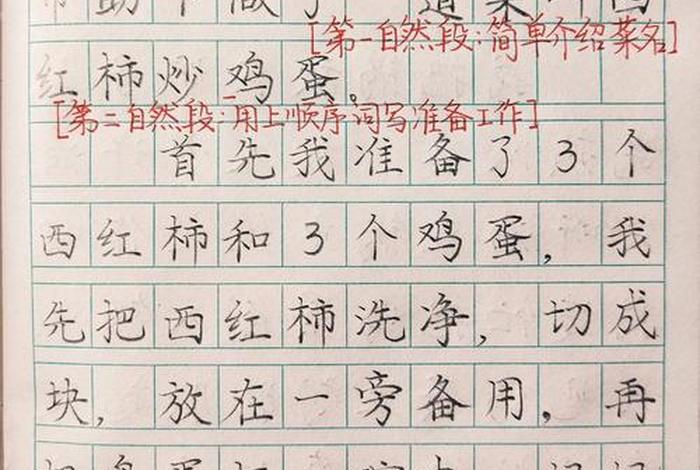 [第一自然段:简单介绍菜名]
红柿炒鸡蛋。
[第二自然段:用上顺序词写准备工作]
首先我准备了3个
西红柿和3个鸡蛋,我
先把西红柿洗净,切成
块,放在一旁备用,再